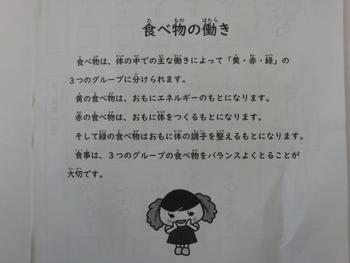 食べ物の働き
食べ物は、体の中での主な働きによって「黄・赤・緑」の
３つのグループに分けられます。
黄の食べ物は、おもにエネルギーのもとになります。
赤の食べ物は、おもに体をつくるもとになります。
そして緑の食べ物はおもに体の調子を整えるもとになります。
食事は、３つのグループの食べ物をバランスよくとることが
大切です。